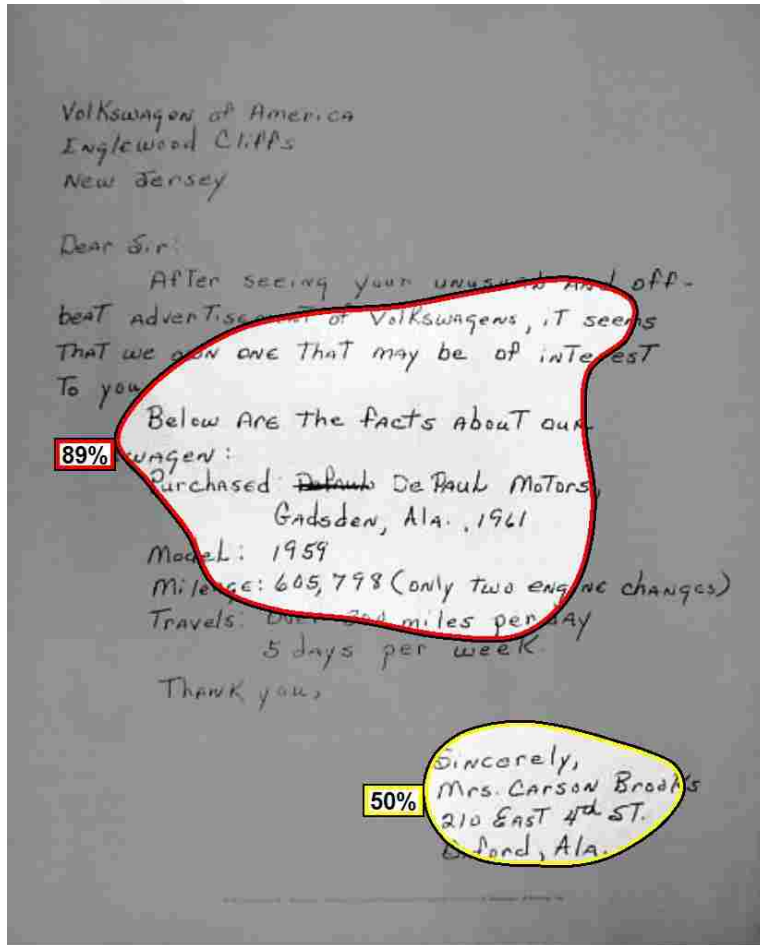 Volkswagen of America
Englewood Cliffs
New Jersey
Dear Sir:
After seeing your unusual and off-
beat advertisement of Volkswagens, it seems
that we own one that may be of interest
To you
Below are the facts about our
wagen:
Purchased: De Paul Motors,
Gadsden, Ala., 1961
Model: 1959
Mileage: 605,798 (only two engine changes)
Travels: Over miles per day
5 days per week.
Thank you,
89%
Sincerely,
Mrs. Carson Brooks
50%
210 East 4th St.
Oxford, Ala.